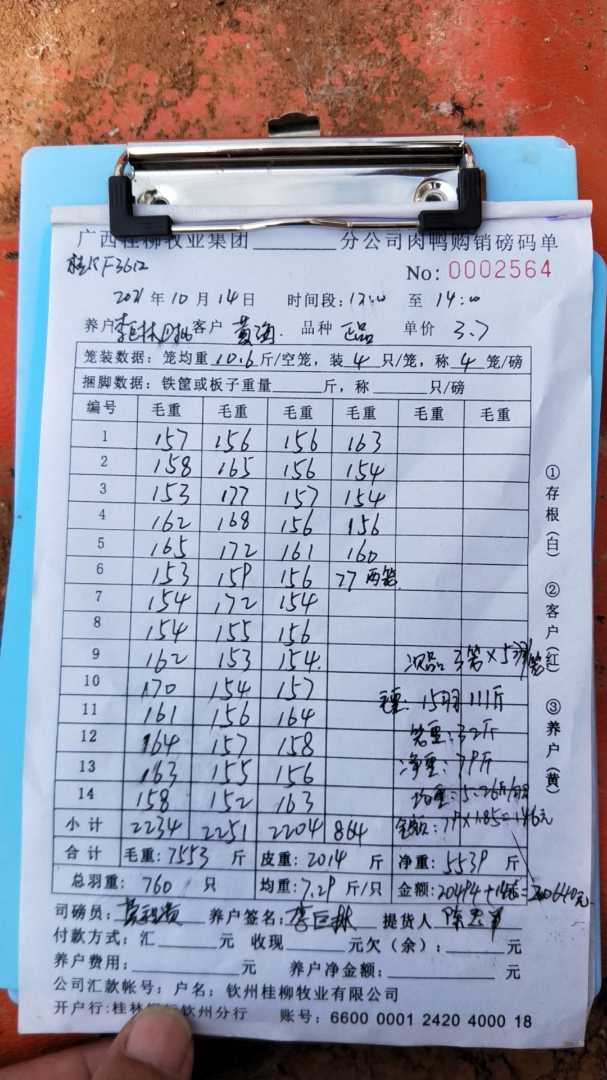 广西桂柳牧业集团________分公司肉鸭购销磅码单
No: 0002564
2021年10月14日 时间段:12:00 至 14:00
养户 客户 黄海 品种 正品 单价 3.7
笼装数据:笼均重10.6斤/空笼,装4只/笼,称4笼/磅
捆脚数据:铁筐或板子重量______斤,称______只/磅
编号 毛重 毛重 毛重 毛重 毛重 毛重
1 157 156 156 163
2 158 165 156 154
3 153 177 157 154
4 162 168 156 156
5 165 172 161 160
6 153 159 156 77 两笼
7 154 172 154
8 154 155 156
9 162 153 154 次品 3笼×5羽/笼
10 170 154 157 毛重: 15羽 111斤
11 161 156 164 笼重:32斤
12 164 157 158 净重:79斤
13 163 155 156 均重:5.26斤/羽
14 158 152 163
小计 2234 2251 2204 864 金额:79×1.85=146元
合计 毛重:7553 斤 皮重:2014 斤 净重:5539 斤
总羽重:760 只 均重:7.29斤/只 金额:20494+146=20640元
司磅员: 养户签名:李巨林 提货人
付款方式:汇______元 收现______元欠(余):______元
养户费用:__________元 养户净金额:__________元
公司汇款帐号:户名:钦州桂柳牧业有限公司
开户行:桂林 钦州分行 账号:6600 0001 2420 4000 18
①存根(白) ②客户(红) ③养户(黄)